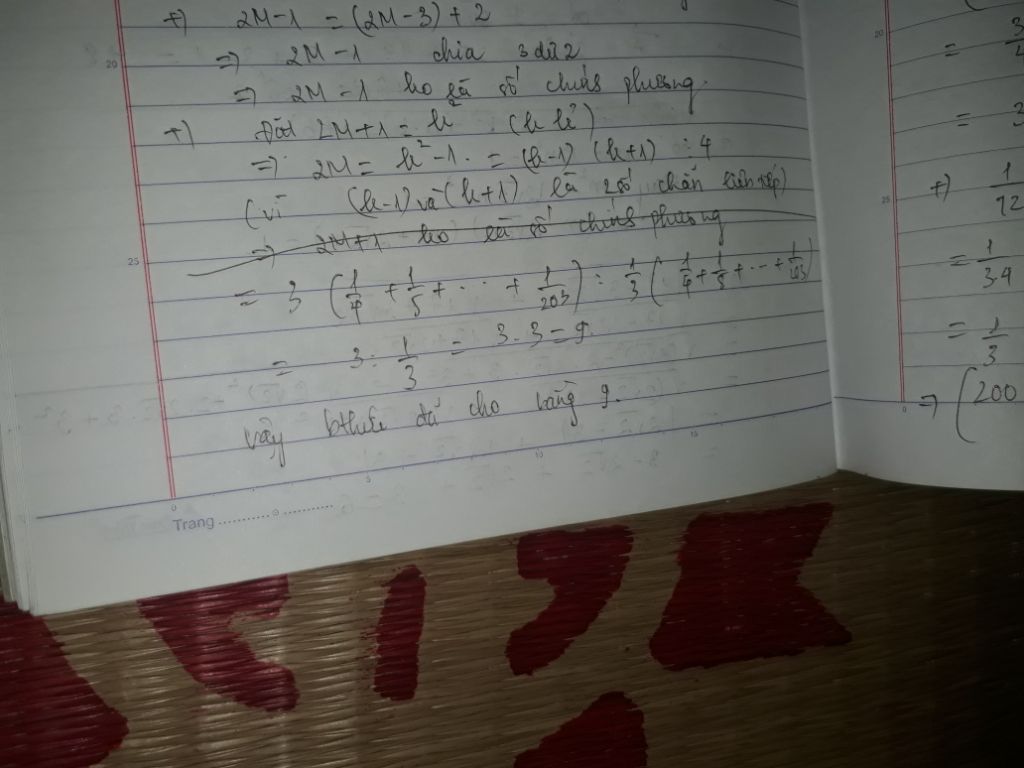 +) 2M-1 = (2M-3) + 2
20
=) 2M-1 chia 3 dư 2
=) 2M-1 ko là số chính phương.
+) Đặt 2M+1 = k² (k lẻ)
=) 2M = k²-1 = (k-1) (k+1) ⋮ 4
(vì (k-1) và (k+1) là 2 số chẵn liên tiếp)
=) 2M+1 ko là số chính phương
25
= 3 (1/4 + 1/5 + ... + 1/203) : 1/3 (1/4 + 1/5 + ... + 1/203)
= 3 : 1/3 = 3.3 = 9
vậy bthức đã cho bằng 9.
0 5 10 15
Trang
20
= 3
= 3
+) 1/12
25
= 1/34
= 1/3
=) (200
0